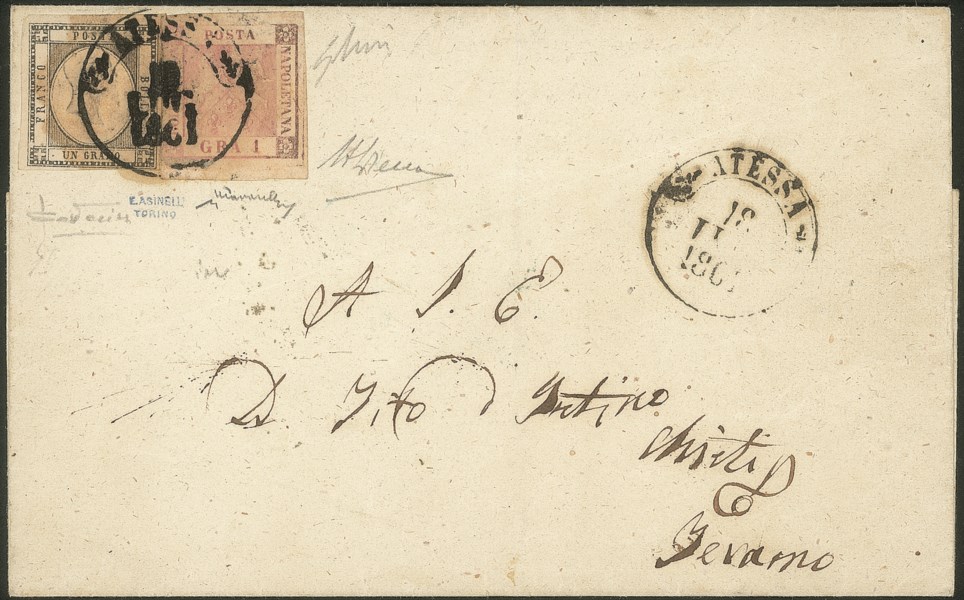 POSTA
FRANCO
BOLLO
UN GRANO
POSTA
NAPOLETANA
GRA 1
ATESSA
1861
E.ASINELLI
TORINO
ATESSA
18
1861
A S. E.
D. Tito
Chieti
Teramo